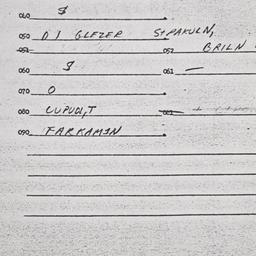 040 $
050 DI GLEZER STPAKULN,
051 052 BRILN
060 $ 061 —
070 0
080 081
090 FARKAMIN